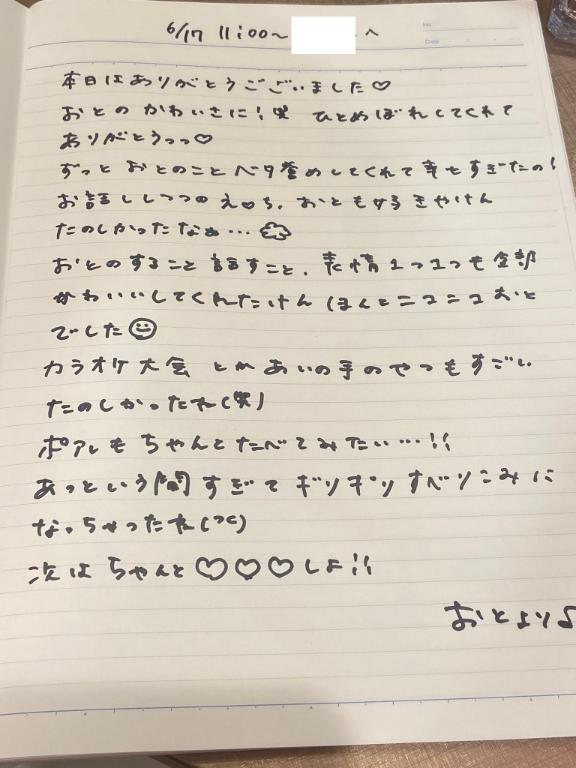 6/17 11:00〜 へ
本日はありがとうございました♡
おとのかわいさに!笑 ひとめぼれしてくれて
ありがとうっっ♡
ずっと おとのこと ベタ褒めしてくれて 幸せすぎたの!
お話ししつつの え♡ち、おとも
たのしかったなぁ…
おとのすること 話すこと、表情1つ1つも全部
かわいいしてくれたけん ほんとニコニコおと
でした☺
カラオケ大会 とか あいの手のやつもすごい
たのしかったね(笑)
ポアレもちゃんとたべてみたい…!!
あっという間すぎて ギリギリすべりこみに
なっちゃったね(つ
次はちゃんと♡♡♡しよ!!
おとより♪